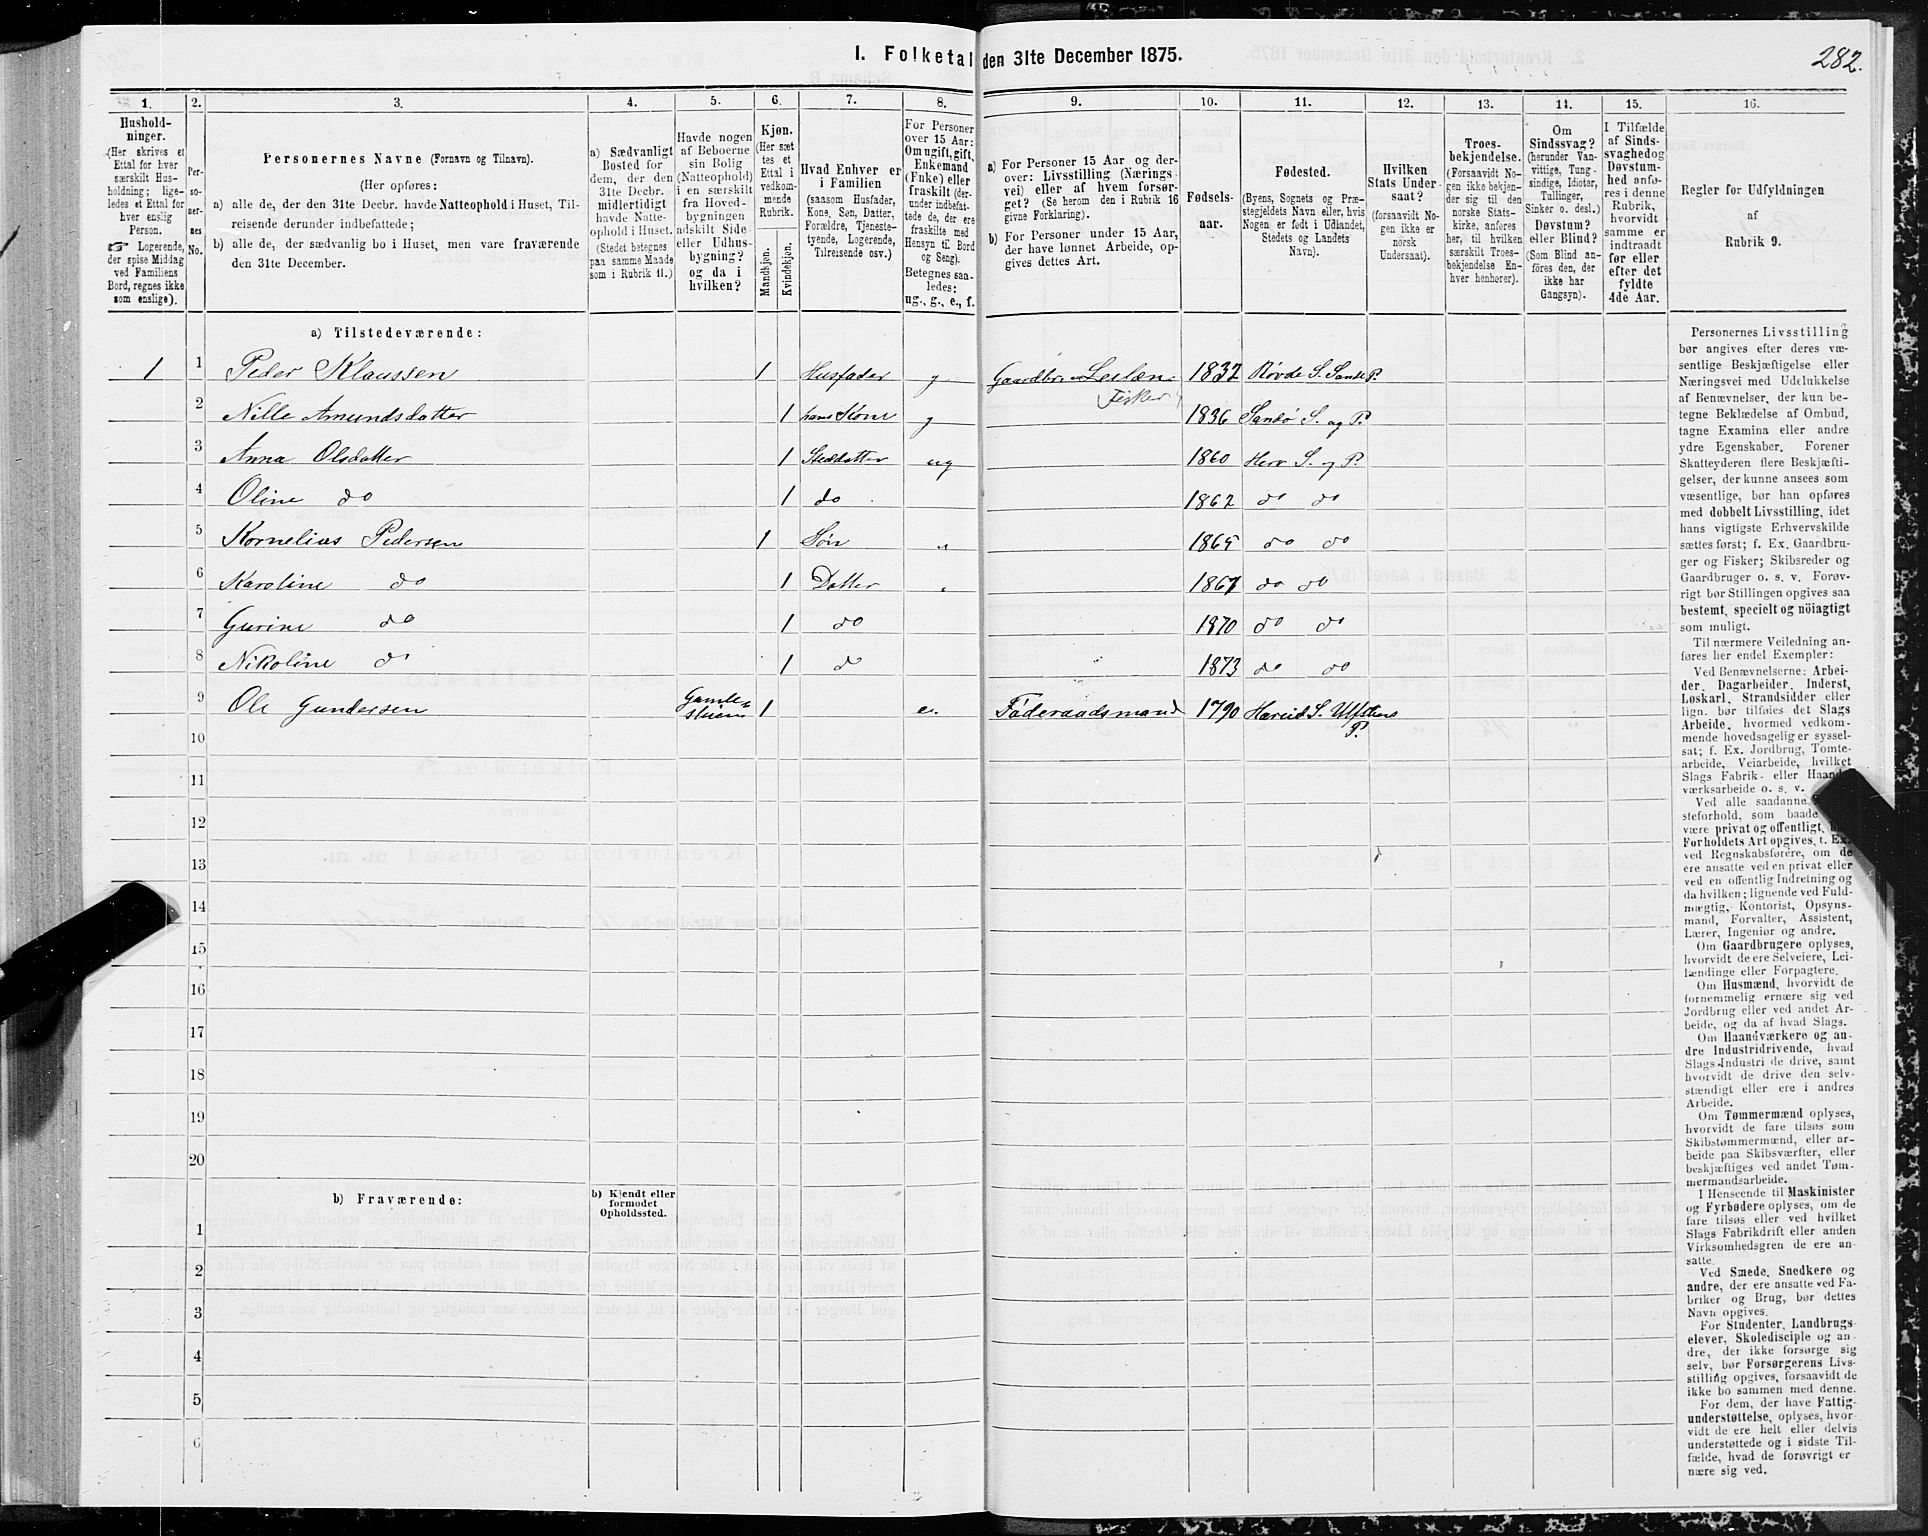 I. Folketal den 31te December 1875.
282.
1. 2. 3. 4. 5. 6. 7. 8. 9. 10. 11. 12. 13. 14. 15. 16.
Hushold-
ninger.
(Her skrives et
Ettal for hver
særskilt Hus-
holdning; lige-
ledes et Ettal for
hver enslig
Person.
☞ Logerende,
der spise Middag
ved Familiens
Bord, regnes ikke
som enslige).
Per-
so-
ner-
nes
No.
Personernes Navne (Fornavn og Tilnavn).
(Her opføres:
a) alle de, der den 31te Decbr. havde Natteophold i Huset, Til-
reisende derunder indbefattede;
b) alle de, der sædvanlig bo i Huset, men vare fraværende
den 31te December.
a) Sædvanligt
Bosted for
dem, der den
31te Decbr.
midlertidigt
havde Natte-
ophold i Huset.
(Stedet betegnes
paa samme Maade
som i Rubrik 11.)
Havde nogen
af Beboerne
sin Bolig
(Natteophold)
i en særskilt
fra Hoved-
bygningen
adskilt Side-
eller Udhus-
bygning?
og da i
hvilken?
Kjøn.
(Her sæt
tes et
Ettal i
vedkom-
mende
Rubrik.
Mandkjøn.
Kvindekjøn.
Hvad Enhver er
i Familien
(saasom Husfader,
Kone, Søn, Datter,
Forældre, Tjeneste-
tyende, Logerende,
Tilreisende osv.)
For Personer
over 15 Aar:
Om ugift, gift,
Enkemand
(Enke) eller
fraskilt (der-
under indbefat-
tede de, der ere
fraskilte med
Hensyn til Bord
og Seng).
Betegnes saa-
ledes:
ug., g., e., f.
a) For Personer 15 Aar og der-
over: Livsstilling (Nærings
vei) eller af hvem forsør-
get? (Se herom den i Rubrik 16
givne Forklaring).
b) For Personer under 15 Aar,
der have lønnet Arbeide, op-
gives dettes Art.
Fødsels-
aar.
Fødested.
(Byens, Sognets og Præ-
stegjeldets Navn eller, hvis
Nogen er født i Udlandet,
Stedets og Landets
Navn).
Hvilken
Stats Under-
saat?
(forsaavidt No-
gen ikke er
norsk
Undersaat).
Troes-
bekjendelse.
(Forsaavidt No-
gen ikke bekjen-
der sig til den
norske Stats-
kirke, anføres
her, til hvilken
særskilt Troes-
bekjendelse En-
hver henhører).
Om
Sindssvag?
(herunder Van-
vittige, Tung-
sindige, Idioter,
Tullinger,
Sinker o. desl.)
Døvstum?
eller Blind?
(Som Blind an-
føres den, der
ikke har
Gangsyn).
I Tilfælde
af Sinds-
svaghed og
Døvstum-
hed anfø-
res i denne
Rubrik,
hvorvidt
samme er
indtraadt
før eller
efter det
fyldte
4de Aar.
Regler for Udfyldningen
af
Rubrik 9.
a) Tilstedeværende:
1 1 Peder Klaussen 1 Husfader g Gaardbr. Leilæn. Fisker 1832 Røvde S. Sande P.
2 Nille Amundsdatter 1 hans Kone g 1836 Sandø S. og P.
3 Anna Olsdatter 1 Steddatter ug 1860 Herø S. og P.
4 Oline do 1 do 1862 do do
5 Kornelius Pedersen 1 Søn " 1865 do do
6 Karoline do 1 Datter 1867 do do
7 Gurine do 1 do 1870 do do
8 Nikoline do 1 do 1873 do do
9 Ole Gundersen Gamle stuen 1 e. Føderaadsmand 1790 Hareid S. Ulfsteens P.
10
11
12
13
14
15
16
17
18
19
20
b) Fraværende:
b) Kjendt eller
formodet
Opholdssted.
1
2
3
4
5
6
Personernes Livsstilling
bør angives efter deres væ-
sentlige Beskjæftigelse eller
Næringsvei med Udelukkelse
af Benævnelser, der kun be-
tegne Beklædelse af Ombud,
tagne Examina eller andre
ydre Egenskaber. Forener
Skatteyderen flere Beskjæfti-
gelser, der kunne ansees som
væsentlige, bør han opføres
med dobbelt Livsstilling, idet
hans vigtigste Erhvervskilde
sættes først; f. Ex. Gaardbru-
ger og Fisker; Skibsreder og
Gaardbruger o. s. v. Forøv-
rigt bør Stillingen opgives saa
bestemt, specielt og nöiagtigt
som muligt.
Til nærmere Veiledning an-
føres her endel Exempler:
Ved Benævnelserne: Arbei-
der, Dagarbeider, Inderst,
Løskarl, Strandsidder eller
lign. bør tilføies det Slags
Arbeide, hvormed vedkom-
mende hovedsagelig er syssel-
sat; f. Ex. Jordbrug, Tomte-
arbeide, Veiarbeide, hvilket
Slags Fabrik- eller Haand-
værksarbeide o. s. v.
Ved alle saadanne
steforhold, som baade
være privat og offentlig,
Forholdets Art opgives, t. Ex.
ved Regnskabsførere, om de
ere ansatte ved en privat eller
ved en offentlig Indretning og
da hvilken; lignende ved Fuld-
mægtig, Kontorist, Opsyns-
mand, Forvalter, Assistent,
Lærer, Ingeniør og andre.
Om Gaardbrugere oplyses,
hvorvidt de ere Selveiere, Lei-
lændinge eller Forpagtere.
Om Husmænd, hvorvidt de
fornemmelig ernære sig ved
Jordbrug eller ved andet Ar-
beide, og da af hvad Slags.
Om Haandværkere og an-
dre Industridrivende, hvad
Slags Industri de drive, samt
hvorvidt de drive den selv-
stændigt eller ere i andres
Arbeide.
Om Tømmermænd oplyses,
hvorvidt de fare tilsøs som
Skibstømmermænd, eller ar-
beide paa Skibsværfter, eller
beskjæftiges ved andet Tøm-
mermandsarbeide.
I Henseende til Maskinister
og Fyrbødere oplyses, om de
fare tilsøs eller ved hvilket
Slags Fabrikdrift eller anden
Virksomhedsgren de ere an-
satte.
Ved Smede, Snedkere og
andre, der ere ansatte ved Fa-
briker og Brug, bør dettes
Navn opgives.
For Studenter, Landbrugs-
elever, Skoledisciple og an-
dre, der ikke forsørge sig
selv, bør Forsørgerens Livs-
stilling opgives, forsaavidt de
ikke bo sammen med denne.
For dem, der have Fattig-
understøttelse, oplyses, hvor-
vidt de ere helt eller delvis
understøttede og i sidste Til-
fælde, hvad de forøvrigt er-
nære sig ved.